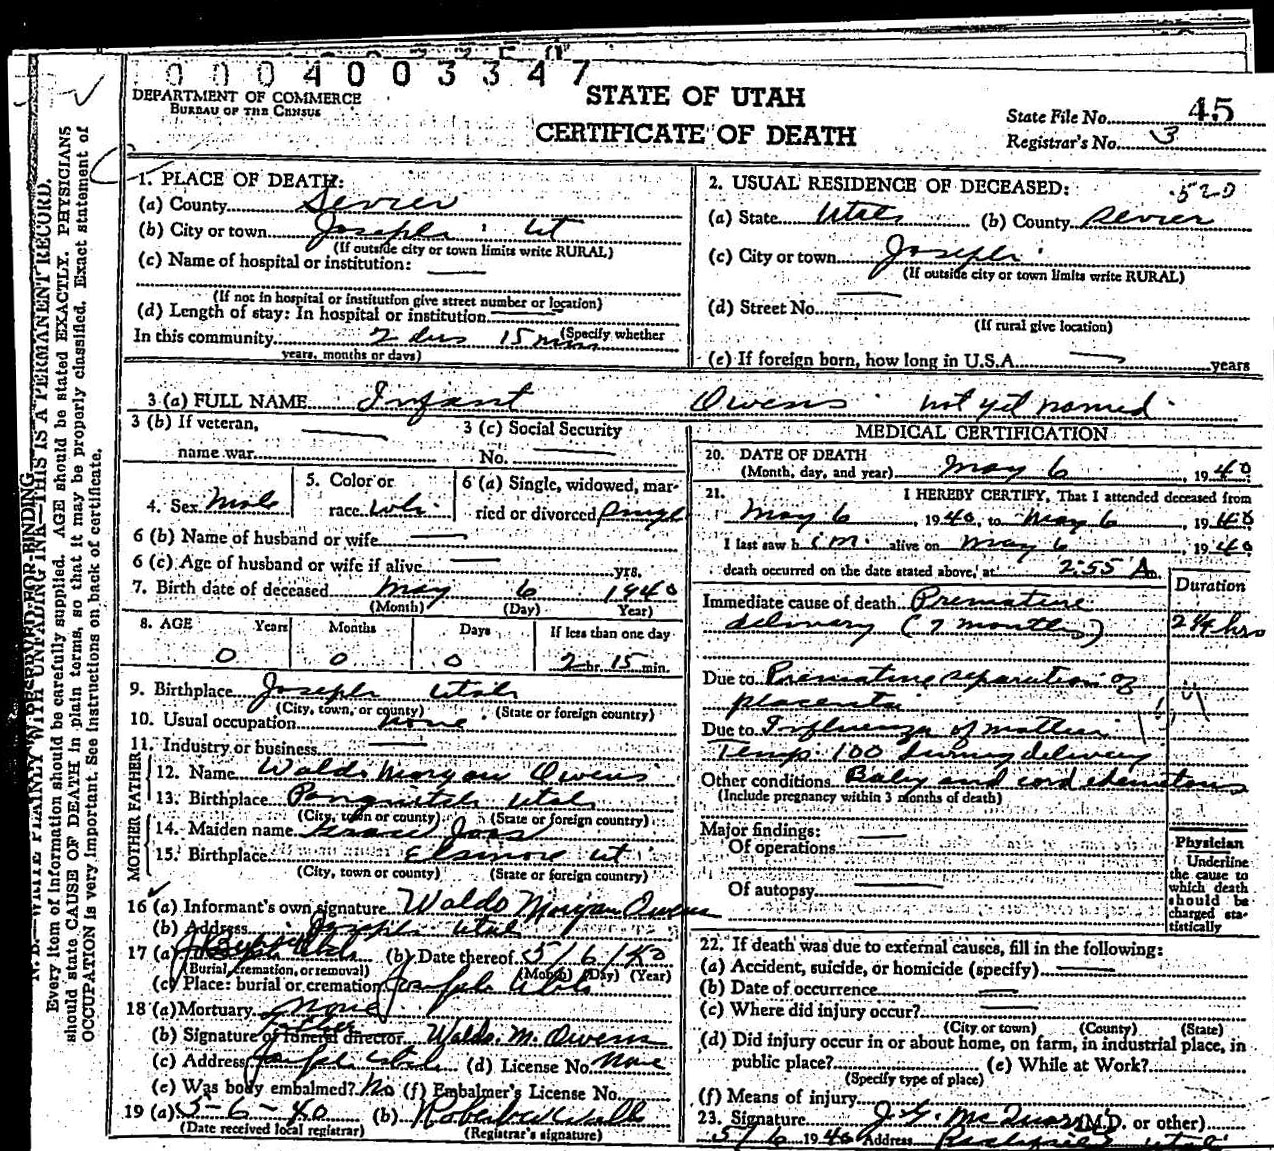 0004003347
DEPARTMENT OF COMMERCE
BUREAU OF THE CENSUS
STATE OF UTAH
CERTIFICATE OF DEATH
State File No. 45
Registrar's No. 3
N. B.—WRITE PLAINLY WITH UNFADING INK—THIS IS A PERMANENT RECORD.
Every item of information should be carefully supplied. AGE should be stated EXACTLY. PHYSICIANS
should state CAUSE OF DEATH in plain terms, so that it may be properly classified. Exact statement of
OCCUPATION is very important. See instructions on back of certificate.
1. PLACE OF DEATH:
(a) County Sevier
(b) City or town Joseph Ut
(If outside city or town limits write RURAL)
(c) Name of hospital or institution: —
(If not in hospital or institution give street number or location)
(d) Length of stay: In hospital or institution —
(Specify whether
In this community 2 hrs 15 min
years, months or days)
2. USUAL RESIDENCE OF DECEASED: 520
(a) State Utah (b) County Sevier
(c) City or town Joseph
(If outside city or town limits write RURAL)
(d) Street No. —
(If rural give location)
(e) If foreign born, how long in U.S.A. — years
3 (a) FULL NAME Infant Owens not yet named
3 (b) If veteran, name war —
3 (c) Social Security No. —
4. Sex Male
5. Color or race Wh.
6 (a) Single, widowed, married or divorced Single
6 (b) Name of husband or wife —
6 (c) Age of husband or wife if alive — yrs.
7. Birth date of deceased May 6 1940
(Month) (Day) Year)
8. AGE Years Months Days If less than one day
0 0 0 2 hr. 15 min.
9. Birthplace Joseph Utah
(City, town, or county) (State or foreign country)
10. Usual occupation none
11. Industry or business —
FATHER
12. Name Waldo Morgan Owens
13. Birthplace Panguitch Utah
(City, town or county) (State or foreign country)
MOTHER
14. Maiden name Grace
15. Birthplace Elsinore Ut
(City, town or county) (State or foreign country)
16 (a) Informant's own signature Waldo Morgan Owens
(b) Address Joseph Utah
17 (a) (b) Date thereof 5/6/40
(Burial, cremation, or removal) (Month) (Day) (Year)
(c) Place: burial or cremation Joseph Utah
18 (a) Mortuary none
(b) Signature of funeral director Father Waldo. M. Owens
(c) Address Joseph Utah (d) License No. None
(e) Was body embalmed? No (f) Embalmer's License No.
19 (a) 5-6-40 (b)
(Date received local registrar) (Registrar's signature)
MEDICAL CERTIFICATION
20. DATE OF DEATH
(Month, day, and year) May 6, 1940
21. I HEREBY CERTIFY, That I attended deceased from
May 6, 1940, to May 6, 1940
I last saw him alive on May 6, 1940
death occurred on the date stated above, at 2:55 A.
Duration
Immediate cause of death Premature
delivery (7 months) 2 1/4 hrs
Due to Premature separation of
placenta
Due to Influenza of mother
Temp. 100 during delivery
Other conditions Baby and cord
(Include pregnancy within 3 months of death)
Major findings:
Of operations —
Of autopsy —
Physician
Underline
the cause to
which death
should be
charged sta-
tistically
22. If death was due to external causes, fill in the following:
(a) Accident, suicide, or homicide (specify) —
(b) Date of occurrence —
(c) Where did injury occur? —
(City or town) (County) (State)
(d) Did injury occur in or about home, on farm, in industrial place, in
public place? (e) While at Work?
(Specify type of place)
(f) Means of injury
23. Signature (M.D. or other)
5/6 1940 Address Richfield Utah